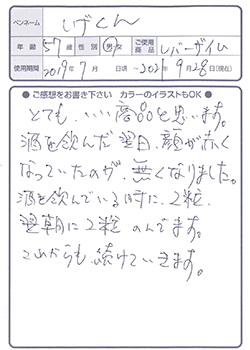 ペンネーム しげくん
年齢 57歳 性別 男・女 ご使用商品 レバーザイム
使用期間 2019年7月 日頃 ~ 2021年9月28日(現在)
●ご感想をお書き下さい カラーのイラストもOK●
とても、いい商品と思います。
酒を飲んだ翌日、顔が赤く
なっていたのが、無くなりました。
酒を飲んでいる時に、2粒
翌朝に2粒 のんでます。
これからも、続けていきます。